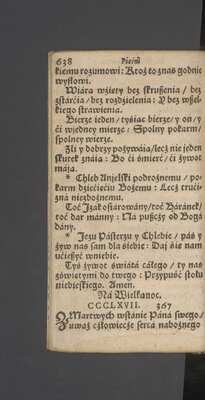 638 Pieśń
kiemu rozumowi: Ktoż to znas godnie
wysłowi.
Wiára wźięty bez skruszenia / bez
zstárćia / bez rozdzielenia: Y bez wszel-
kiego strawienia.
Bierze ieden / tyśiąc bierze / y on / y
ći wiedney mierze: Spolny pokarm /
spolny wierze.
Zli y dobrzy pożywáią / lecż nie ieden
skutek znáią: Bo ći śmierć / ći żywot
máią.
* Chleb Anjelski podrożnemu / po-
karm dziećięćiu Bożemu: Lecż truci-
zná niezbożnemu.
Toć Jzák ofiárowány / toć Báránek /
toć dar mánny: Na pusżcży od Bogá
dány.
* Jezu Pásterzu y Chlebie / páś y
żyw nas sam dla śiebie: Day śię nam
vćieszyć wniebie.
Tyś żywot świátá cáłego / ty nas
zowiesz do twego: Przypuść stołu
niebieskiego. Amen.
Ná Wielkanoc.
CCCLXVII. 367
Martwych wstánie Páná swego /
vważ cżłowiecże sercá nabożnego